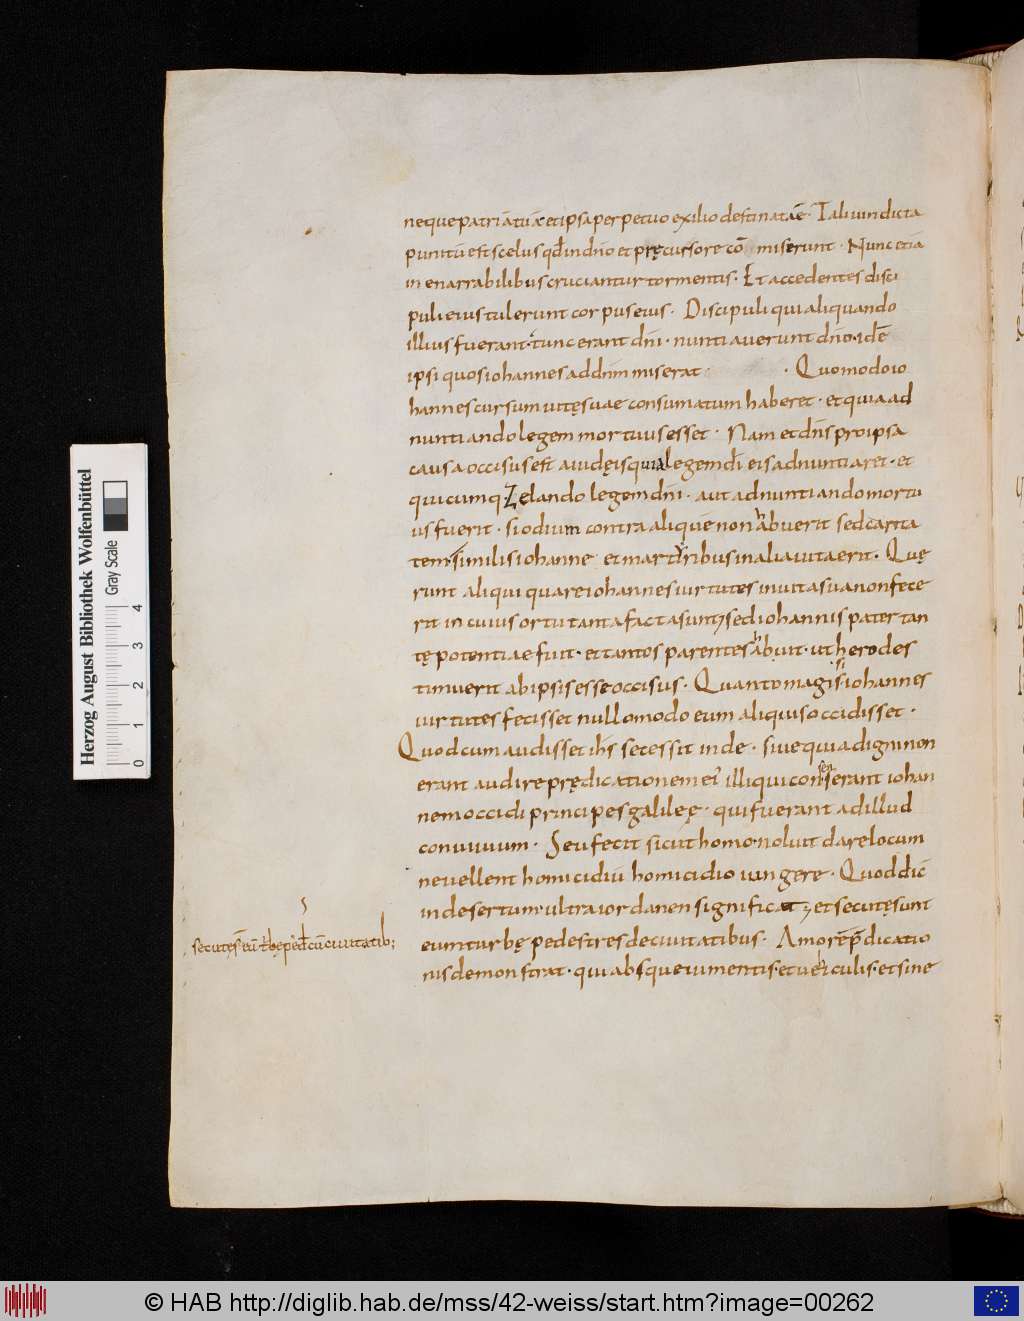 neque patri ad tuā et ipsa perpetuo exilio destinatae. Tali uindicta
punitū est scelus qđ in dn̄o et pręcursore cō miserunt. Nunc etiā
in enarrabilibus cruciantur tormentis. Et accedentes disci
puli eius tulerunt corpus eius. Discipuli qui aliquando
illius fuerant. tunc erant dn̄i. nuntiauerunt dn̄o. idē
ipsi quos iohannes ad dn̄m miserat. Quomodo io
hannes cursum uitę suae consumatum haberet. et quia ad
nuntiando legem mortuus esset. Nam et dn̄s pro ipsa
causa occisus est a iudęis quia legem dī eis adnuntiaret. et
quicumq Zelando legem dn̄i. aut adnuntiando mortu
us fuerit. si odium contra aliquē non habuerit sed carita
tem. similis iohanne et martyribus in alia uita erit. Quę
runt aliqui quare iohannes uirtutes in uita sua non fece
rit in cuius ortu tanta facta sunt; sed iohannis pater tan
tę potentiae fuit. et tantos parentes habuit. ut herodes
timuerit ab ipsis esse occisus. Quanto magis si iohannes
uirtutes fecisset nullo modo eum aliquis occidisset.
Quod cum audisset ih̄s secessit inde. siue quia digni non
erant audire prędicationem ei' illi qui consenserant iohan
nem occidi principes galileę. qui fuerant ad illud
conuiuium. Seu fecit sicut homo. noluit dare locum
ne uellent homicidiū homicidio iungere. Quod dic̄
in desertum. ultra iordanen significat; et secutę sunt
eum turbę pedestres de ciuitatibus. Amorē p̄dicatio
nis demonstrat. qui absque iumentis. et uehiculis. et sine
secutę s̄ eū t'bę ped̄ cū ciuitatib;
Herzog August Bibliothek Wolfenbüttel
Gray Scale
0 1 2 3 4
© HAB http://diglib.hab.de/mss/42-weiss/start.htm?image=00262